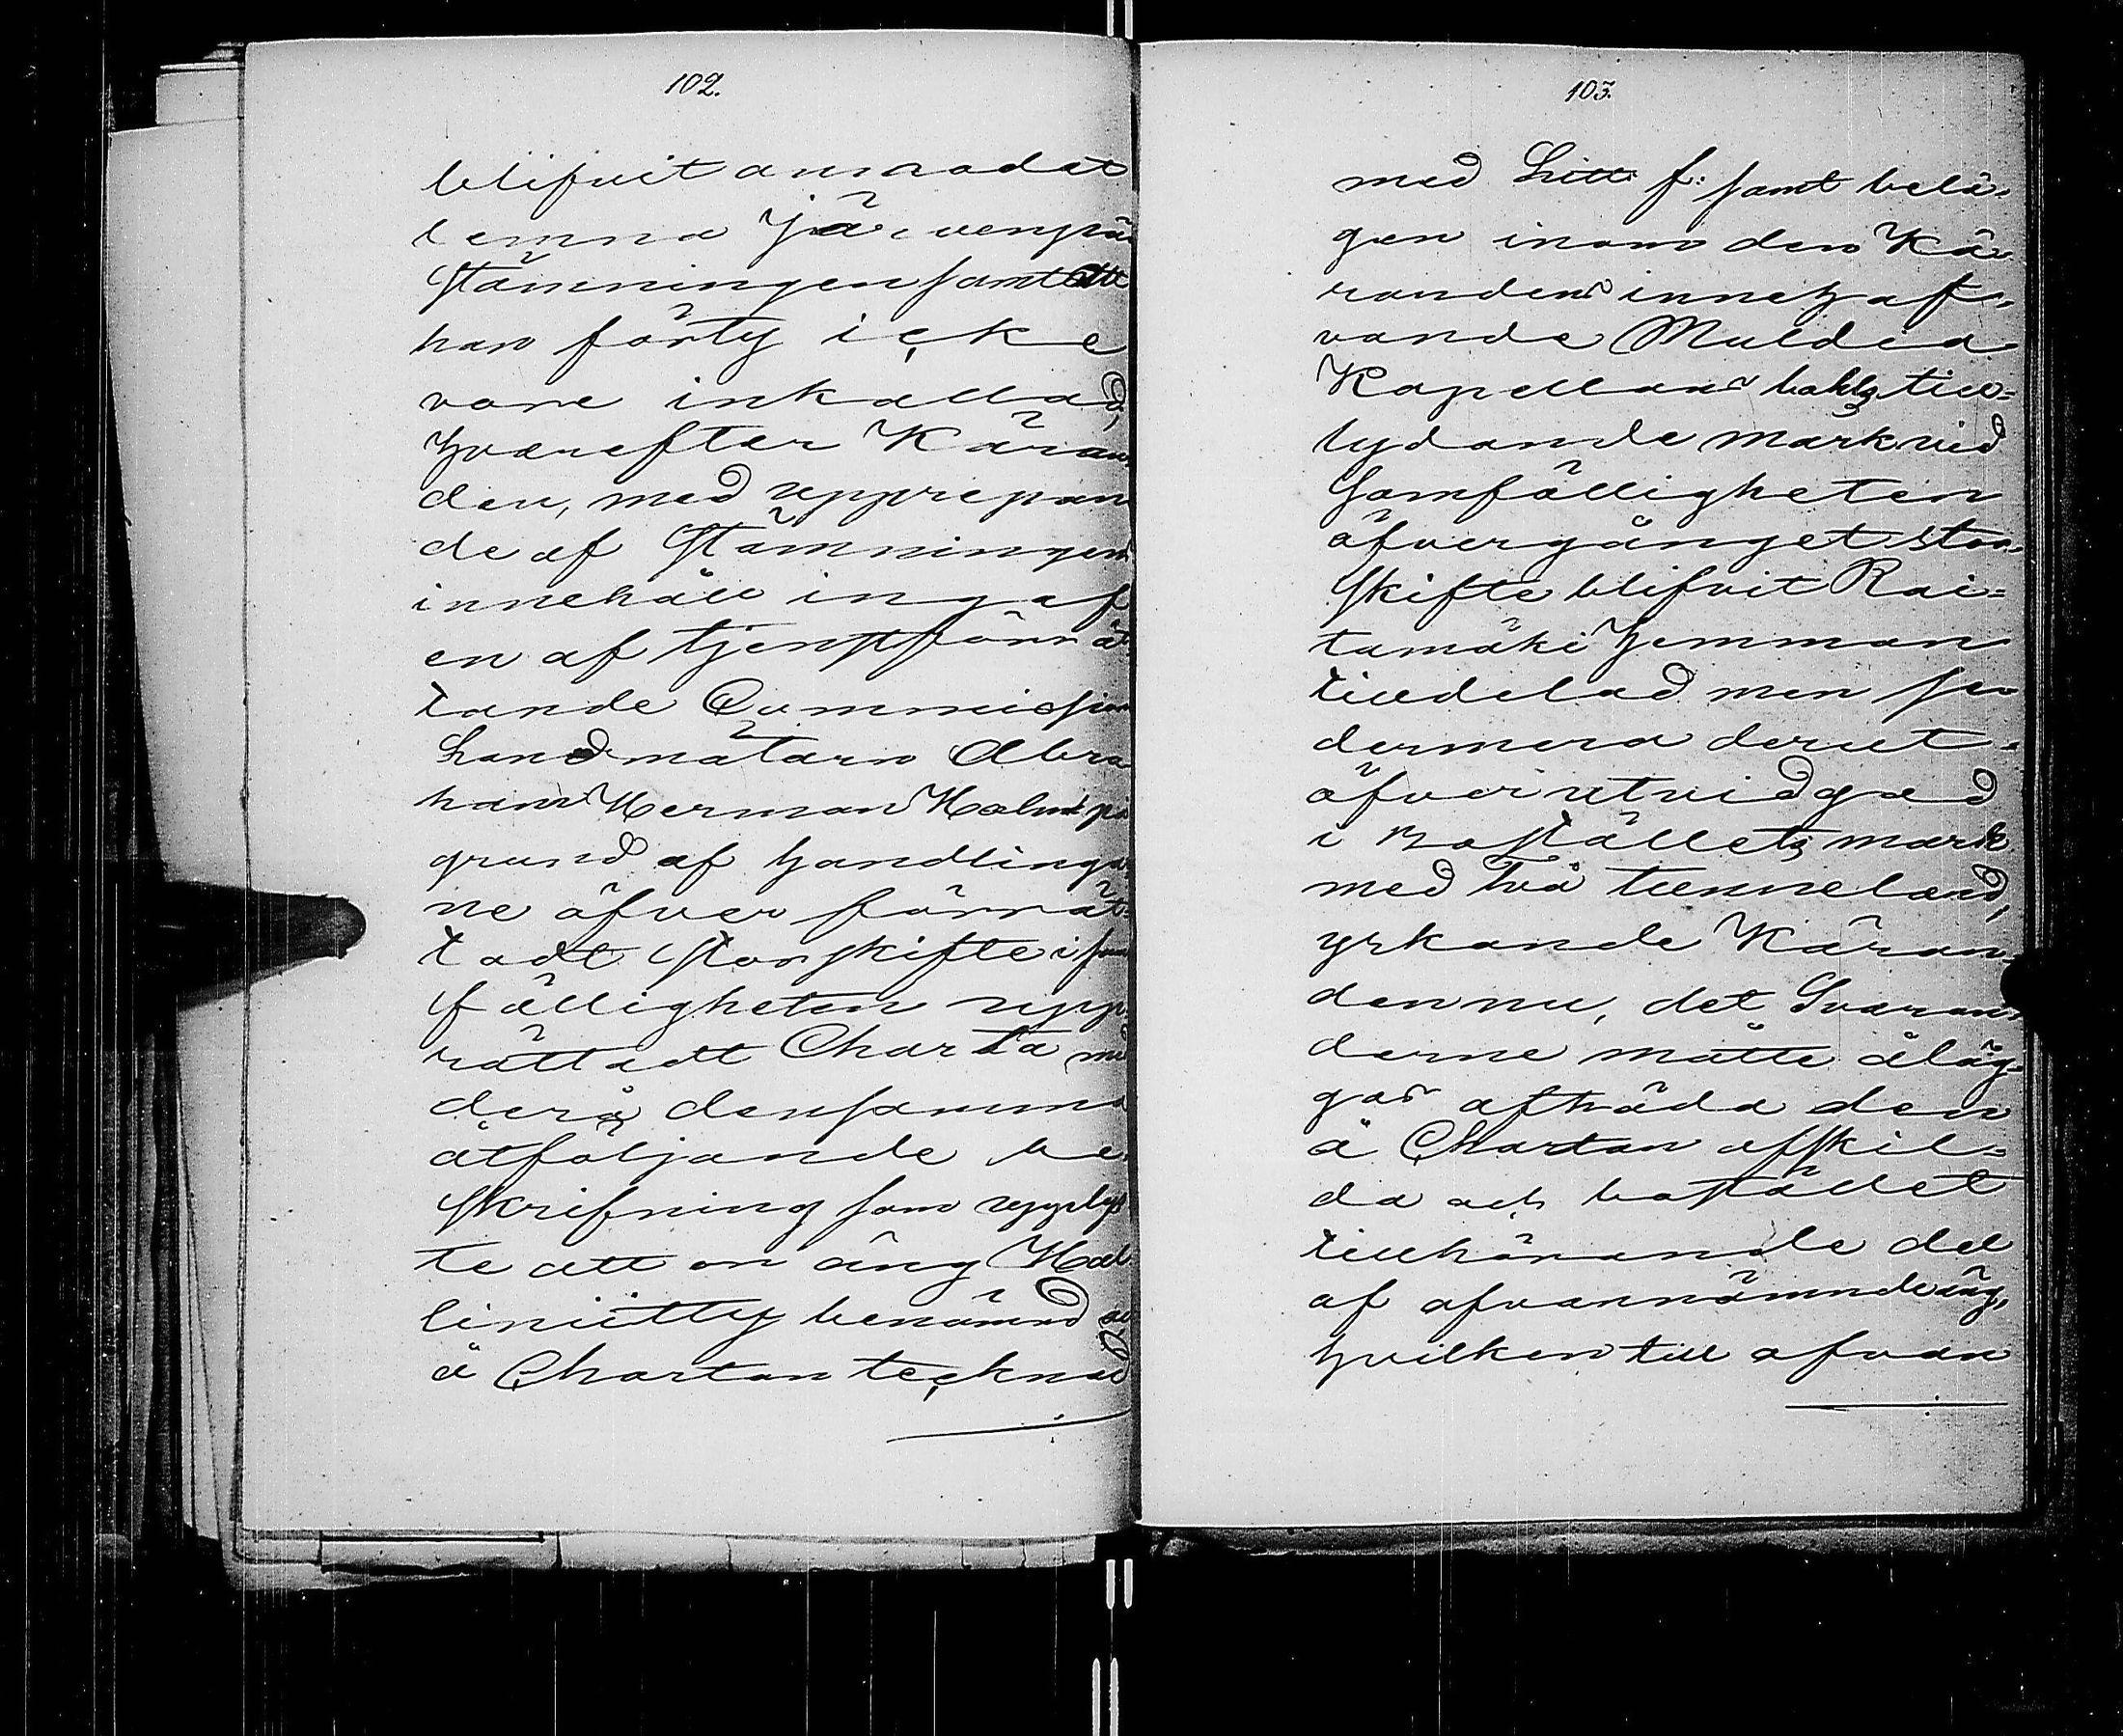 102.
blifvit anmodat
lemna Jä venpää
Stämningen samt att
han förty icke
vore inkallad,
hvarefter Käran
den, med upprepan
de af Stämningens
innehåll ingaf
en af tjenstförrät
tande Commissions
Landmätaren Abra
ham Herman Holm på
grund af handlingar
ne öfver förrät
tadt Storskifte i sam
fälligheten upp
rättadt Charta med
derå densamma
åtföljande be
skrifning som upplys
te att en äng
benämnd
å Chartan tecknad
103.
med Litt. f: samt belä-
gen inom den Kä
randens innehaf-
vande Muldia
Kapellans bohls till-
lydande mark vid
Samfälligheten
öfvergånget stor
skifte blifvit Rai-
tamäki hemman
tilldelad men se
dermera derut-
öfver utvidgad
i Boställets mark
med två tunneland,
yrkande Käran-
den nu, det Svaran-
derne måtte åläg-
gas afträda den
å Chartan afskil-
da och bostället
tillhörande del
af ofvannämnde äng,
hvilken till ofvan